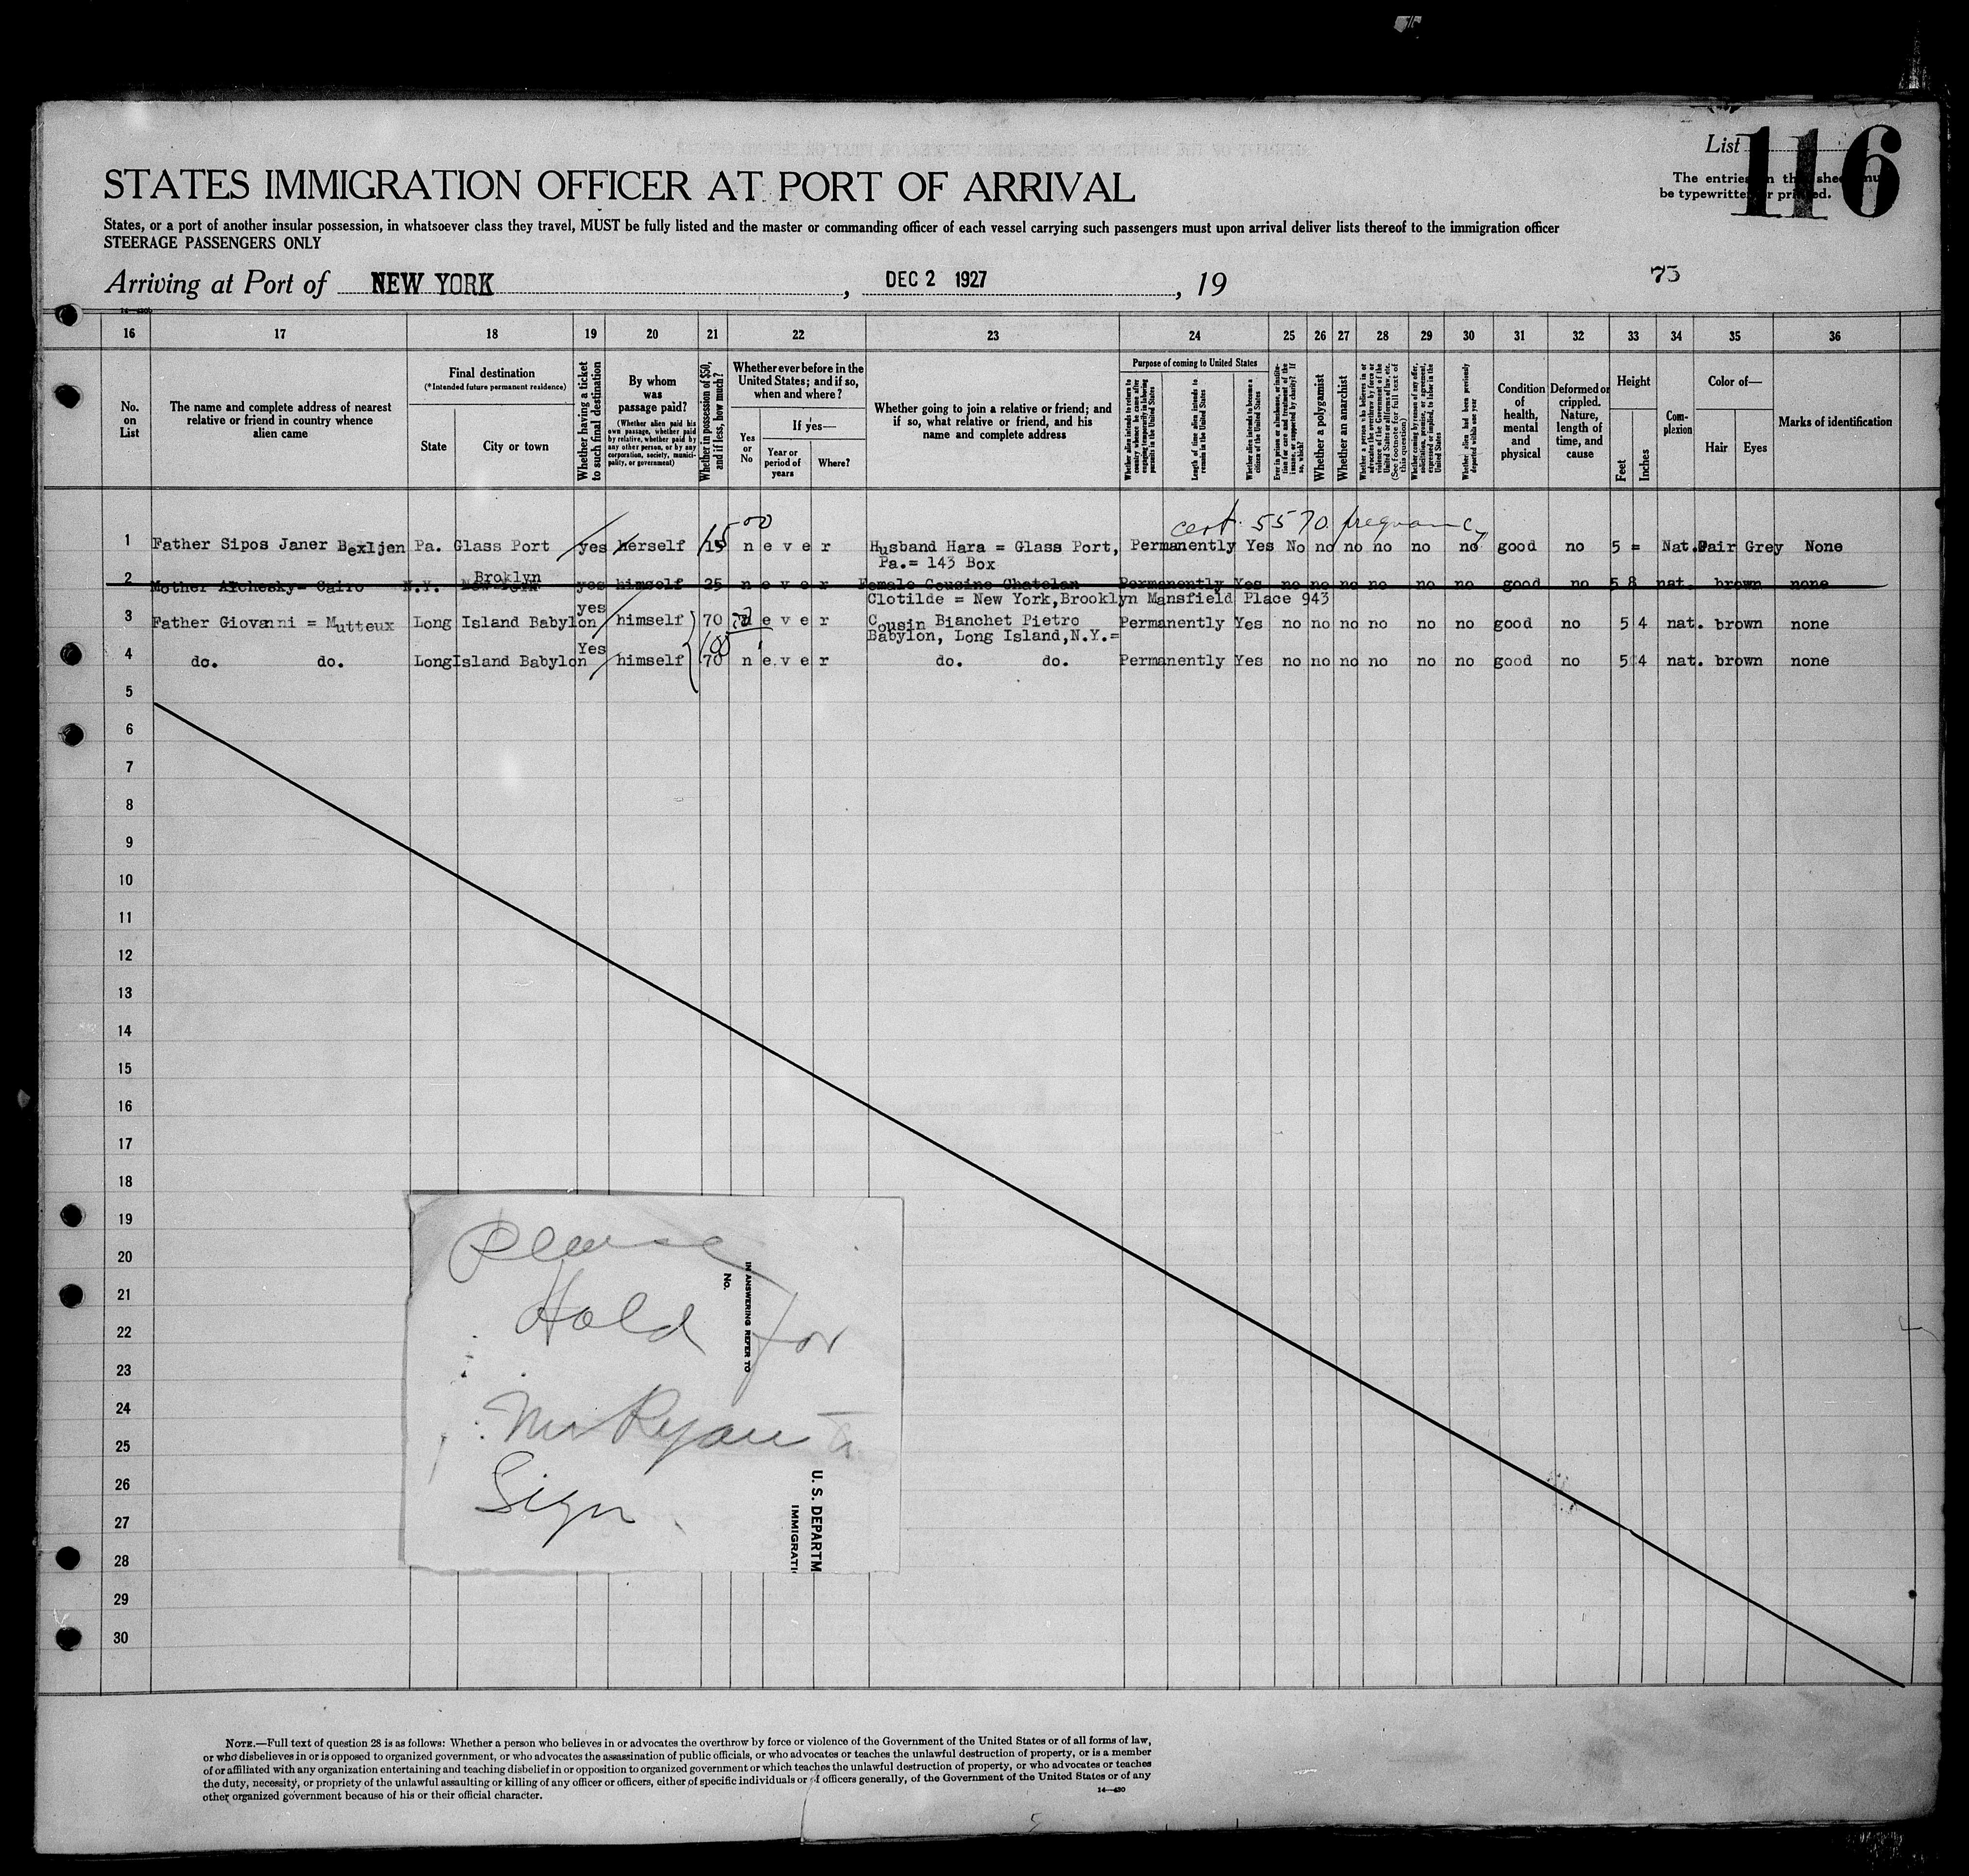 List 116
The entries on this sheet must
be typewritten or printed.
STATES IMMIGRATION OFFICER AT PORT OF ARRIVAL
States, or a port of another insular possession, in whatsoever class they travel, MUST be fully listed and the master or commanding officer of each vessel carrying such passengers must upon arrival deliver lists thereof to the immigration officer
STEERAGE PASSENGERS ONLY
Arriving at Port of NEW YORK, DEC 2 1927, 19
73
14—430
16 17 18 19 20 21 22 23 24 25 26 27 28 29 30 31 32 33 34 35 36
No. on List
The name and complete address of nearest relative or friend in country whence alien came
Final destination
(*Intended future permanent residence)
State
City or town
Whether having a ticket to such final destination
By whom was passage paid?
(Whether alien paid his own passage, whether paid by relative, whether paid by any other person, or by any corporation, society, municipality, or government)
Whether in possession of $50, and if less, how much?
Whether ever before in the United States; and if so, when and where?
Yes or No
If yes—
Year or period of years
Where?
Whether going to join a relative or friend; and if so, what relative or friend, and his name and complete address
Purpose of coming to United States
Whether alien intends to return to country whence he came after engaging temporarily in laboring pursuits in the United States
Length of time alien intends to remain in the United States
Whether alien intends to become a citizen of the United States
Ever in prison or almshouse, or institution for care and treatment of the insane, or supported by charity? If so, which?
Whether a polygamist
Whether an anarchist
Whether a person who believes in or advocates the overthrow by force or violence of the Government of the United States or all forms of law, etc. (See footnote for full text of this question)
Whether coming by reason of any offer, solicitation, promise, or agreement, expressed or implied, to labor in the United States
Whether alien had been previously deported within one year
Condition of health, mental and physical
Deformed or crippled. Nature, length of time, and cause
Height
Feet
Inches
Complexion
Color of—
Hair
Eyes
Marks of identification
cert. 5570 pregnancy
15 00
1 Father Sipos Janer Bexljen Pa. Glass Port yes herself 15 never Husband Hara = Glass Port, Permanently Yes No no no no no no good no 5 = Nat. Fair Grey None
Pa.= 143 Box
Broklyn
2 Mother Archesky= Cairo N.Y. New York yes himself 25 never Female Cousine Chatelan Permanently Yes no no no no no no good no 5 8 nat. brown none
Clotilde = New York, Brooklyn Mansfield Place 943
yes
3 Father Giovanni = Mutteux Long Island Babylon himself 70 never Cousin Bianchet Pietro Permanently Yes no no no no no no good no 5 4 nat. brown none
Babylon, Long Island, N.Y.=
Yes 100
4 do. do. Long Island Babylon himself 70 never do. do. Permanently Yes no no no no no no good no 5 4 nat. brown none
5
6
7
8
9
10
11
12
13
14
15
16
17
18
19
20
21
22
23
24
25
26
27
28
29
30
Please
Hold for
Mr Ryan to
Sign.
IN ANSWERING REFER TO
No.
U. S. DEPARTM
IMMIGRATI
NOTE.—Full text of question 28 is as follows: Whether a person who believes in or advocates the overthrow by force or violence of the Government of the United States or of all forms of law,
or who disbelieves in or is opposed to organized government, or who advocates the assassination of public officials, or who advocates or teaches the unlawful destruction of property, or is a member
of or affiliated with any organization entertaining and teaching disbelief in or opposition to organized government or which teaches the unlawful destruction of property, or who advocates or teaches
the duty, necessity, or propriety of the unlawful assaulting or killing of any officer or officers, either of specific individuals or of officers generally, of the Government of the United States or of any
other organized government because of his or their official character.
14—430